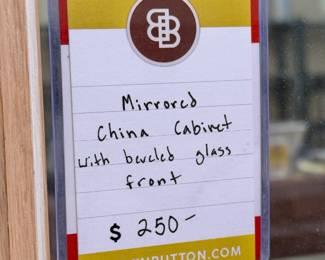 BB
Mirrored
China Cabinet
with beveled glass
front
$ 250-
NBUTTON.COM